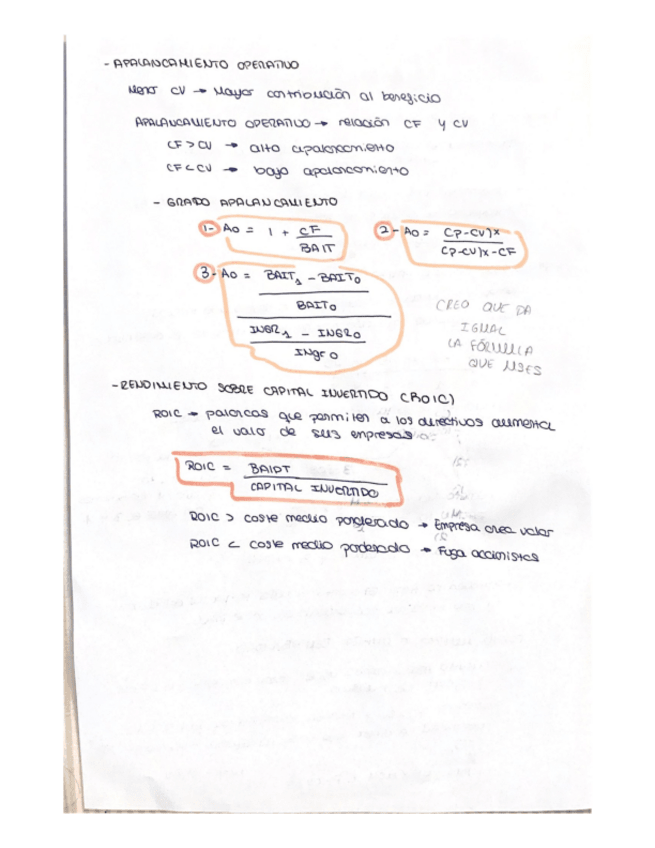 - APALANCAMIENTO OPERATIVO
Menor CV → Mayor contribución al beneficio
APALANCAMIENTO OPERATIVO → relación CF y CV
CF > CV → alto apalancamiento
CF < CV → bajo apalancamiento
- GRADO APALANCAMIENTO
1- AO = 1 + CF / BAIT
2- AO = (P-CV)X / (P-CV)X-CF
3- AO = BAIT1 - BAIT0
BAIT0
INGR1 - INGR0
INGR0
CREO QUE DA
IGUAL
LA FÓRMULA
QUE USES
- RENDIMIENTO SOBRE CAPITAL INVERTIDO (ROIC)
ROIC → palancas que permiten a los directivos aumentar
el valor de sus empresas
ROIC = BAIDT / CAPITAL INVERTIDO
ROIC > coste medio ponderado → Empresa crea valor
ROIC < coste medio poderado → Fuga accionistas